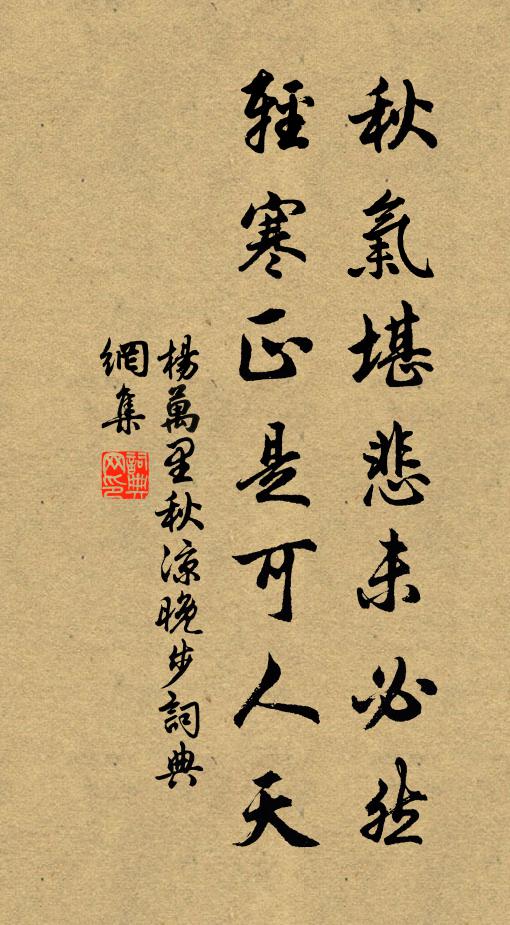 秋氣堪悲未必然
輕寒正是可人天
楊萬里秋涼晚步詞典
網集
詞典網印